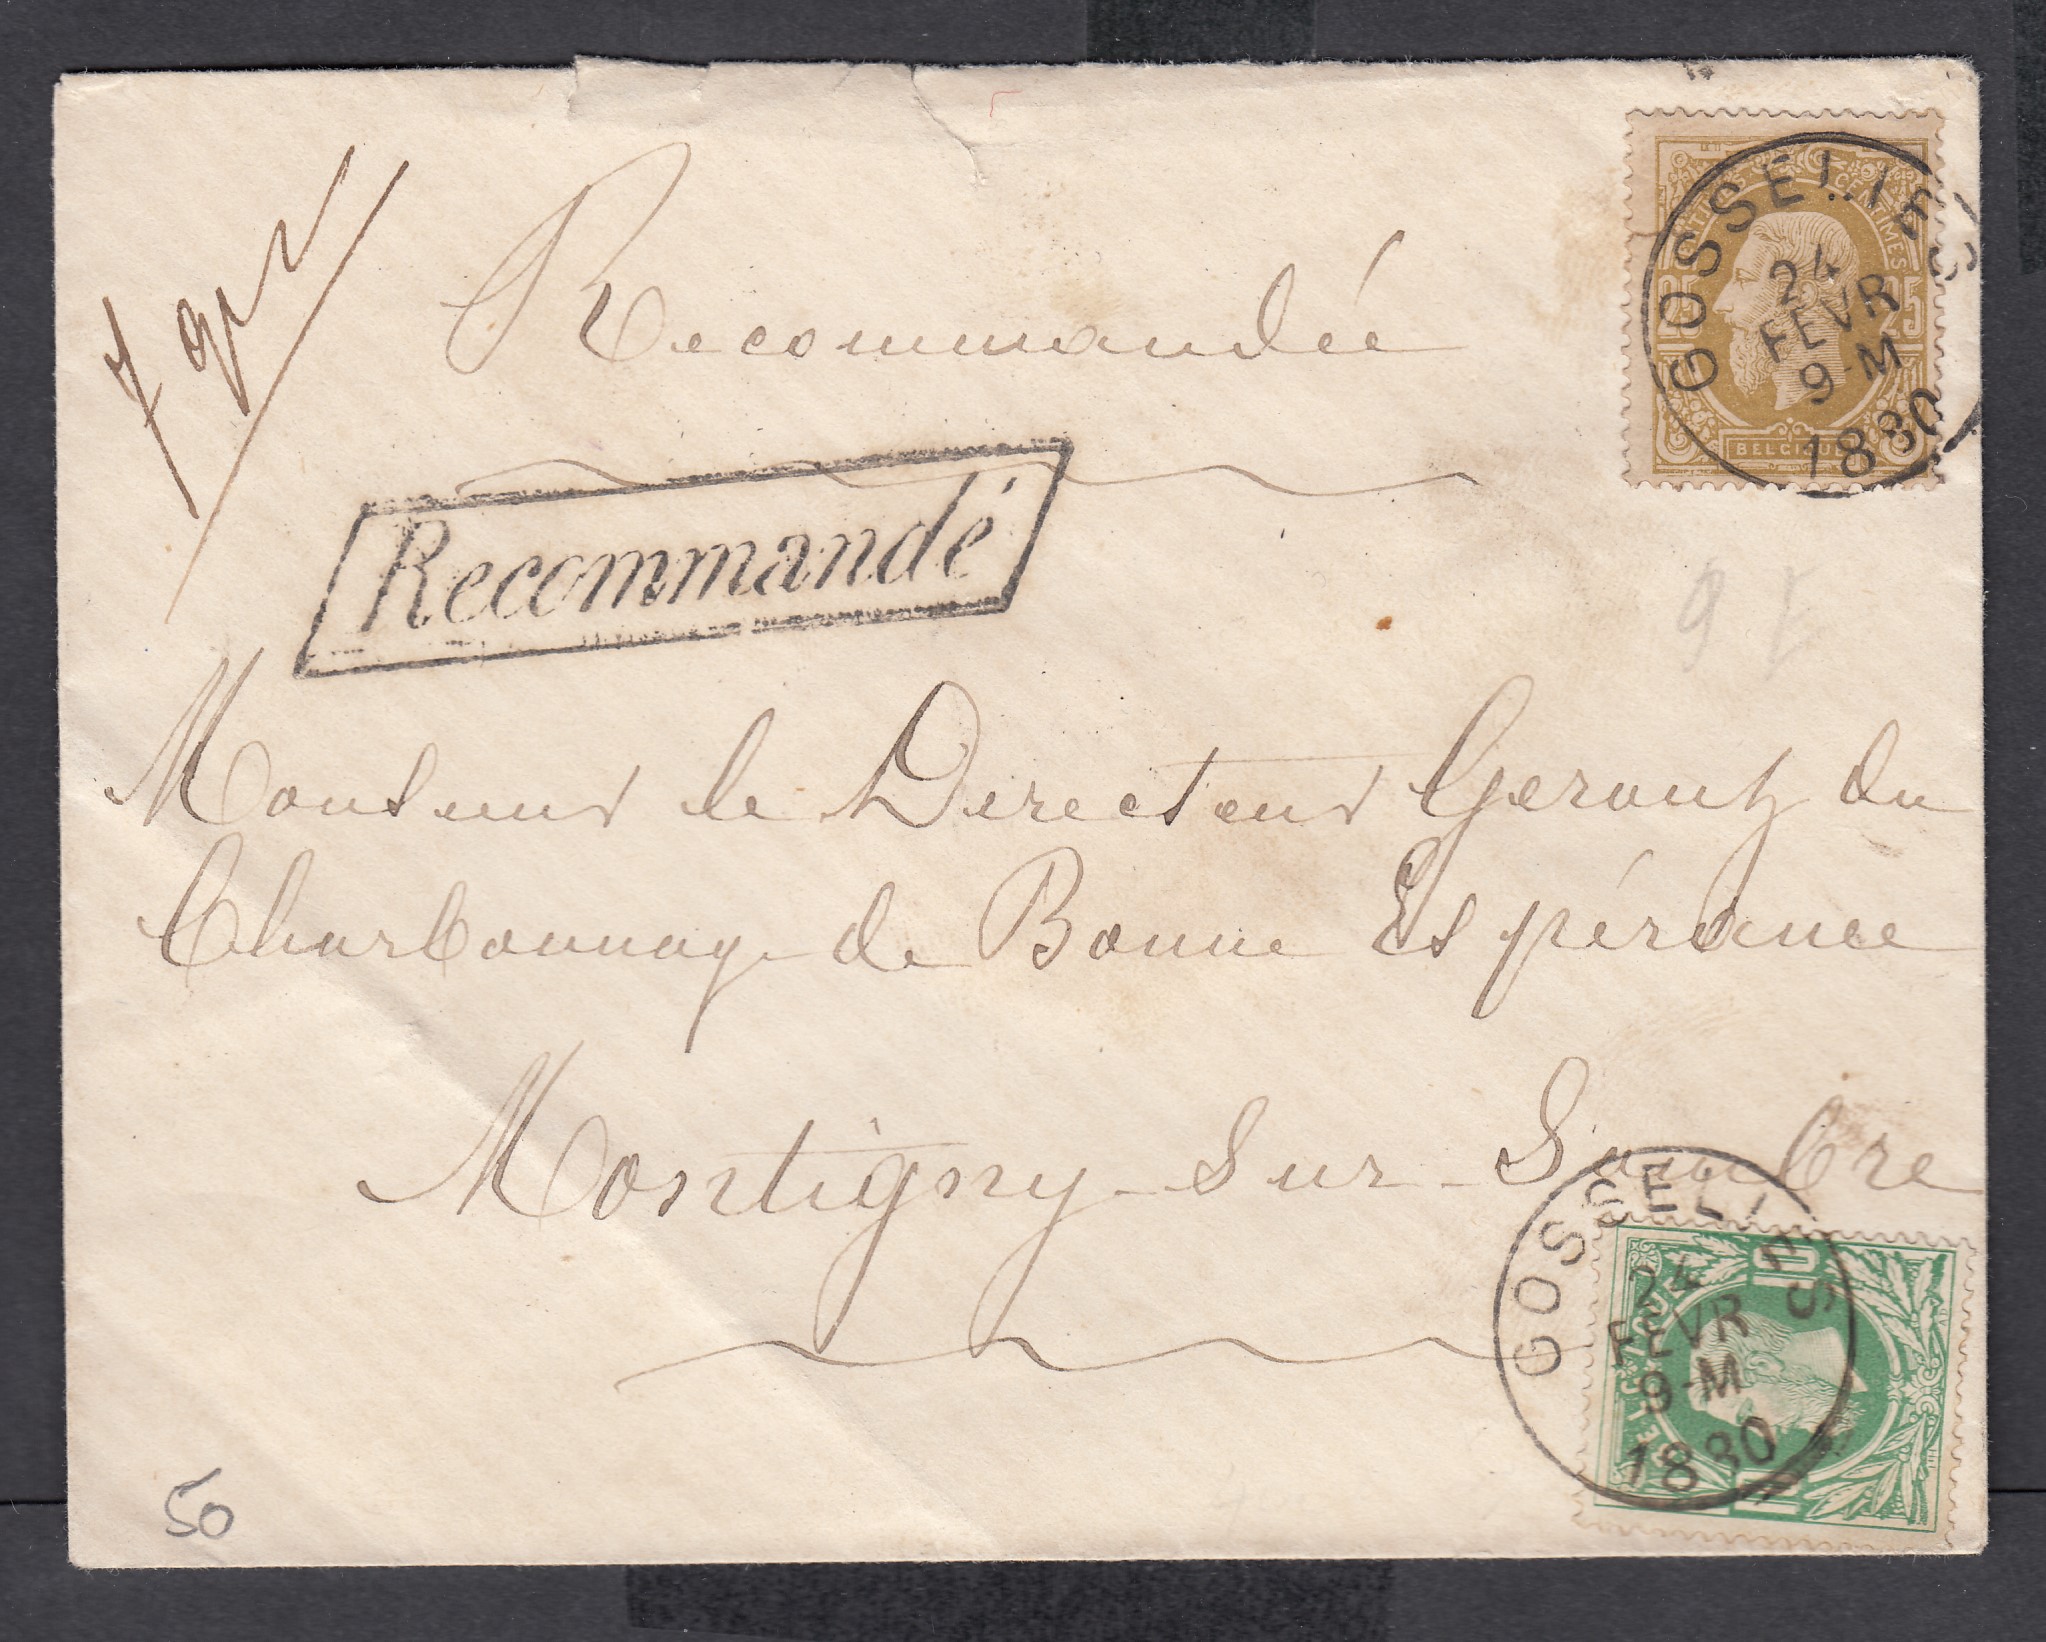 7 gr
Recommandée
Recommandé
CENTIMES CENTIMES
25 25
BELGIQUE
GOSSELIES
24
FEVR
9-M
1880
Monsieur le Directeur Gerant du
Charbonnage de Bonne Espérance
Montigny-Sur-Sambre
GOSSELIES
24
FEVR
9-M
1880
10
50